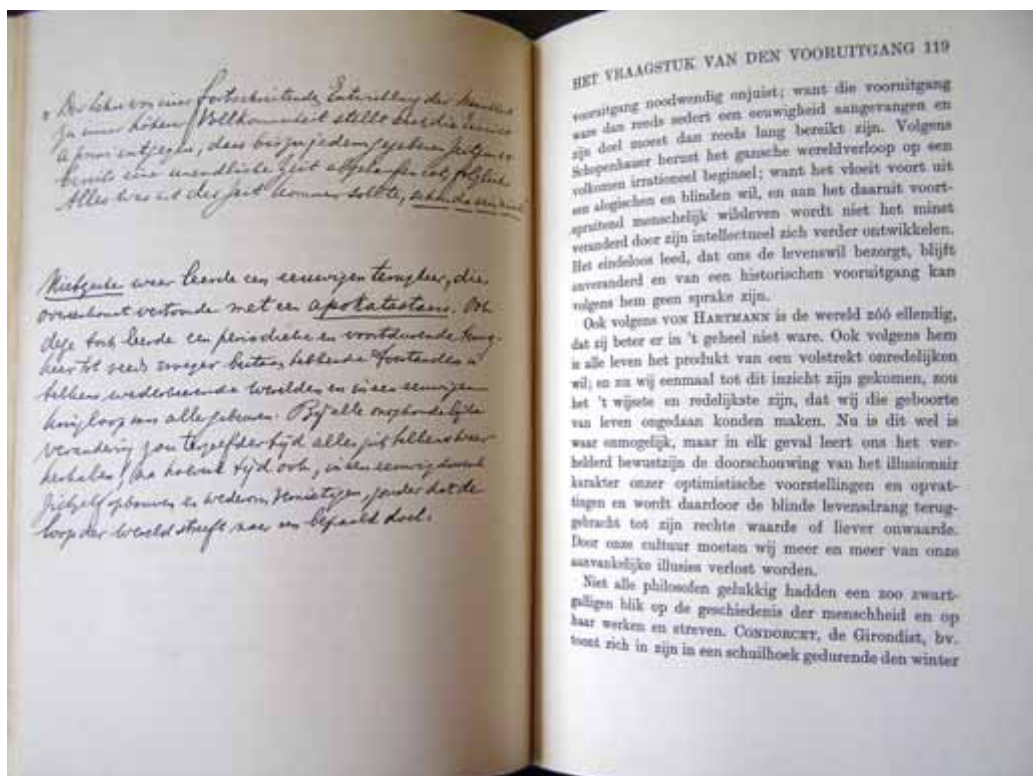 " Der Lehre von einer fortschreitenden Entwicklung der Menschheit
zu einer höhern Vollkommenheit stellt sich die Einsicht
a priori entgegen, dass bis zu jedem gegebenen Zeitpunkt
bereits eine unendliche Zeit abgelaufen ist, folglich
Alles was mit der Zeit kommen sollte, schon da sein
Nietzsche weer leerde een eeuwigen terugkeer, die
overeenkomst vertoonde met een apokatastasis. Ook
deze toch leerde een periodieken en voortdurende terug-
keer tot reeds vroeger bestaan hebbende toestanden in
telkens wederkeerende werelden en in een eeuwigen
kringloop van alle gebeuren. Bij alle onophoudelijke
verandering zou terzelfder tijd alles zich telkens weer
herhalen, na tijd ook, in een eeuwig
zichzelf opbouwen en wederom vernietigen, zonder dat de
loop der wereld streeft naar een bepaald doel.
HET VRAAGSTUK VAN DEN VOORUITGANG 119
vooruitgang noodwendig onjuist; want die vooruitgang
ware dan reeds sedert een eeuwigheid aangevangen en
zijn doel moest dan reeds lang bereikt zijn. Volgens
Schopenhauer berust het gansche wereldverloop op een
volkomen irrationeel beginsel; want het vloeit voort uit
een alogischen en blinden wil, en aan het daaruit voort-
spruitend menschelijk wilsleven wordt niet het minst
veranderd door zijn intellectueel zich verder ontwikkelen.
Het eindeloos leed, dat ons de levenswil bezorgt, blijft
onveranderd en van een historischen vooruitgang kan
volgens hem geen sprake zijn.
Ook volgens VON HARTMANN is de wereld zóó ellendig,
dat zij beter er in 't geheel niet ware. Ook volgens hem
is alle leven het produkt van een volstrekt onredelijken
wil; en nu wij eenmaal tot dit inzicht zijn gekomen, zou
het 't wijste en redelijkste zijn, dat wij die geboorte
van leven ongedaan konden maken. Nu is dit wel is
waar onmogelijk, maar in elk geval leert ons het ver-
helderd bewustzijn de doorschouwing van het illusionair
karakter onzer optimistische voorstellingen en opvat-
tingen en wordt daardoor de blinde levensdrang terug-
gebracht tot zijn rechte waarde of liever onwaarde.
Door onze cultuur moeten wij meer en meer van onze
aanvankelijke illusies verlost worden.
Niet alle philosofen gelukkig hadden een zoo zwart-
galligen blik op de geschiedenis der menschheid en op
haar werken en streven. CONDORCET, de Girondist, bv.
toont zich in zijn in een schuilhoek gedurende den winter